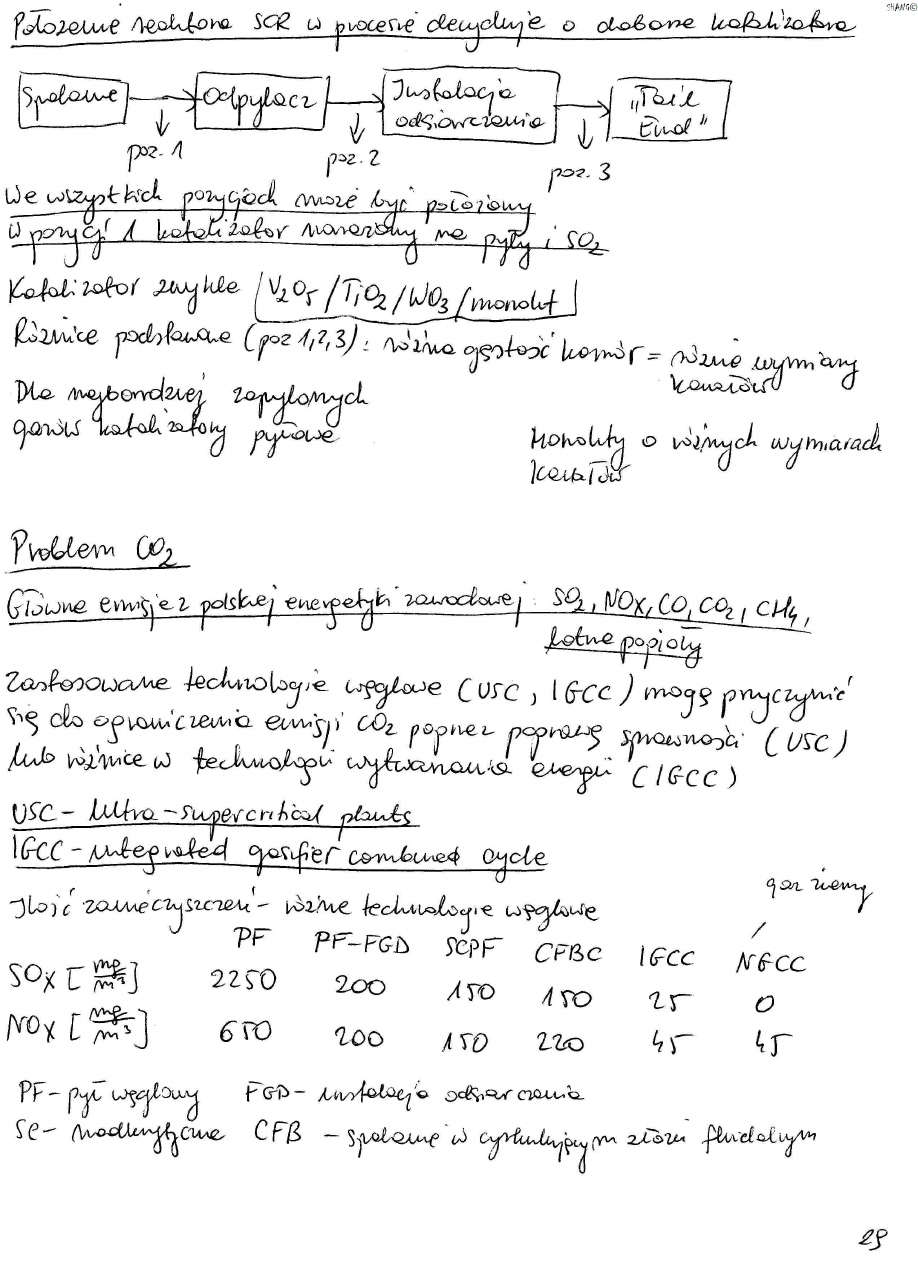 SHANG©
Położenie reaktora SCR w procesie decyduje o doborze katalizatora
Spalanie → Odpylacz → Instalacja odsiarczania → „Tail End"
poz. 1 poz. 2 poz. 3
We wszystkich pozycjach może być położony
W pozycji 1 katalizator narażony na pyły i SO2
Katalizator zwykle V2O5/TiO2/WO3/monolit
Różnice podstawowe (poz 1,2,3): różna gęstość komór = różne wymiary
kanałów
Dla najbardziej zapylonych
gazów katalizatory pyłowe
Monolity o różnych wymiarach
kanałów
Problem CO2
Główne emisje z polskiej energetyki zawodowej: SO2, NOx, CO, CO2, CH4,
lotne popioły
Zastosowane technologie węglowe (USC, IGCC) mogą przyczynić
się do ograniczenia emisji CO2 poprzez poprawę sprawności (USC)
lub różnice w technologii wytwarzania energii (IGCC)
USC – Ultra-supercritical plants
IGCC – integrated gasifier combined cycle
gaz ziemny
Ilość zanieczyszczeń – różne technologie węglowe
PF PF-FGD SCPF CFBC IGCC NGCC
SOx [mg/m³] 2250 200 150 150 25 0
NOx [mg/m³] 650 200 150 220 45 45
PF – pył węglowy FGD – instalacja odsiarczania
SC – nadkrytyczne CFB – spalanie w cyrkulującym złożu fluidalnym
29